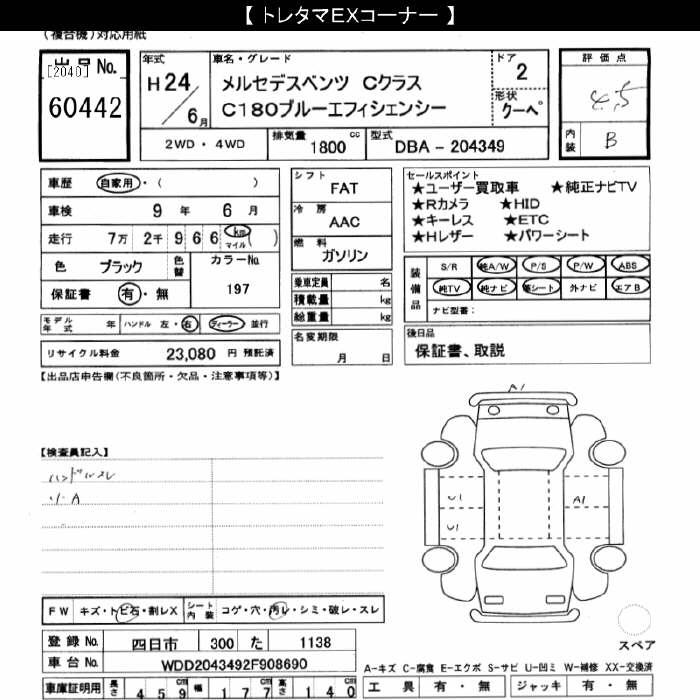 【 トレタマEXコーナー 】
(複合機)対応用紙
出品No.
[2040]
60442
年式
H24/6月
車名・グレード
メルセデスベンツ Cクラス
C180ブルーエフィシェンシー
ドア
2
形状
クーペ
評価点
4.5
内装
B
2WD・4WD
排気量
1800 cc
型式
DBA - 204349
車歴 自家用・( )
車検 9年 6月
走行 7万 2千 9 6 6 km マイル ( )
色 ブラック
色替
カラーNo.
197
保証書 有・無
モデル年式 年
ハンドル 左・右
ディーラー 並行
リサイクル料金 23,080 円 預託済
シフト
FAT
冷房
AAC
燃料
ガソリン
乗車定員 名
積載量 kg
総重量 kg
名変期限
月 日
セールスポイント
★ユーザー買取車 ★純正ナビTV
★Rカメラ ★HID
★キーレス ★ETC
★Hレザー ★パワーシート
装備品
S/R 純A/W P/S P/W ABS
純TV 純ナビ 革シート 外ナビ エアB
ナビ型番:
後日品
保証書、取説
【出品店申告欄(不良箇所・欠品・注意事項等)】
【検査員記入】
ハンドルスレ
リ.A
A1
U1
U1
A1
スペア
FW キズ・トビ石・割レX
シート内装 コゲ・穴・汚レ・シミ・破レ・スレ
登録No. 四日市 300 た 1138
車台No. WDD2043492F908690
車庫証明用 長さ 459cm 幅 177cm 高さ 140cm
A-キズ C-腐食 E-エクボ S-サビ U-凹ミ W-補修 XX-交換済
工具 有・無 ジャッキ 有・無